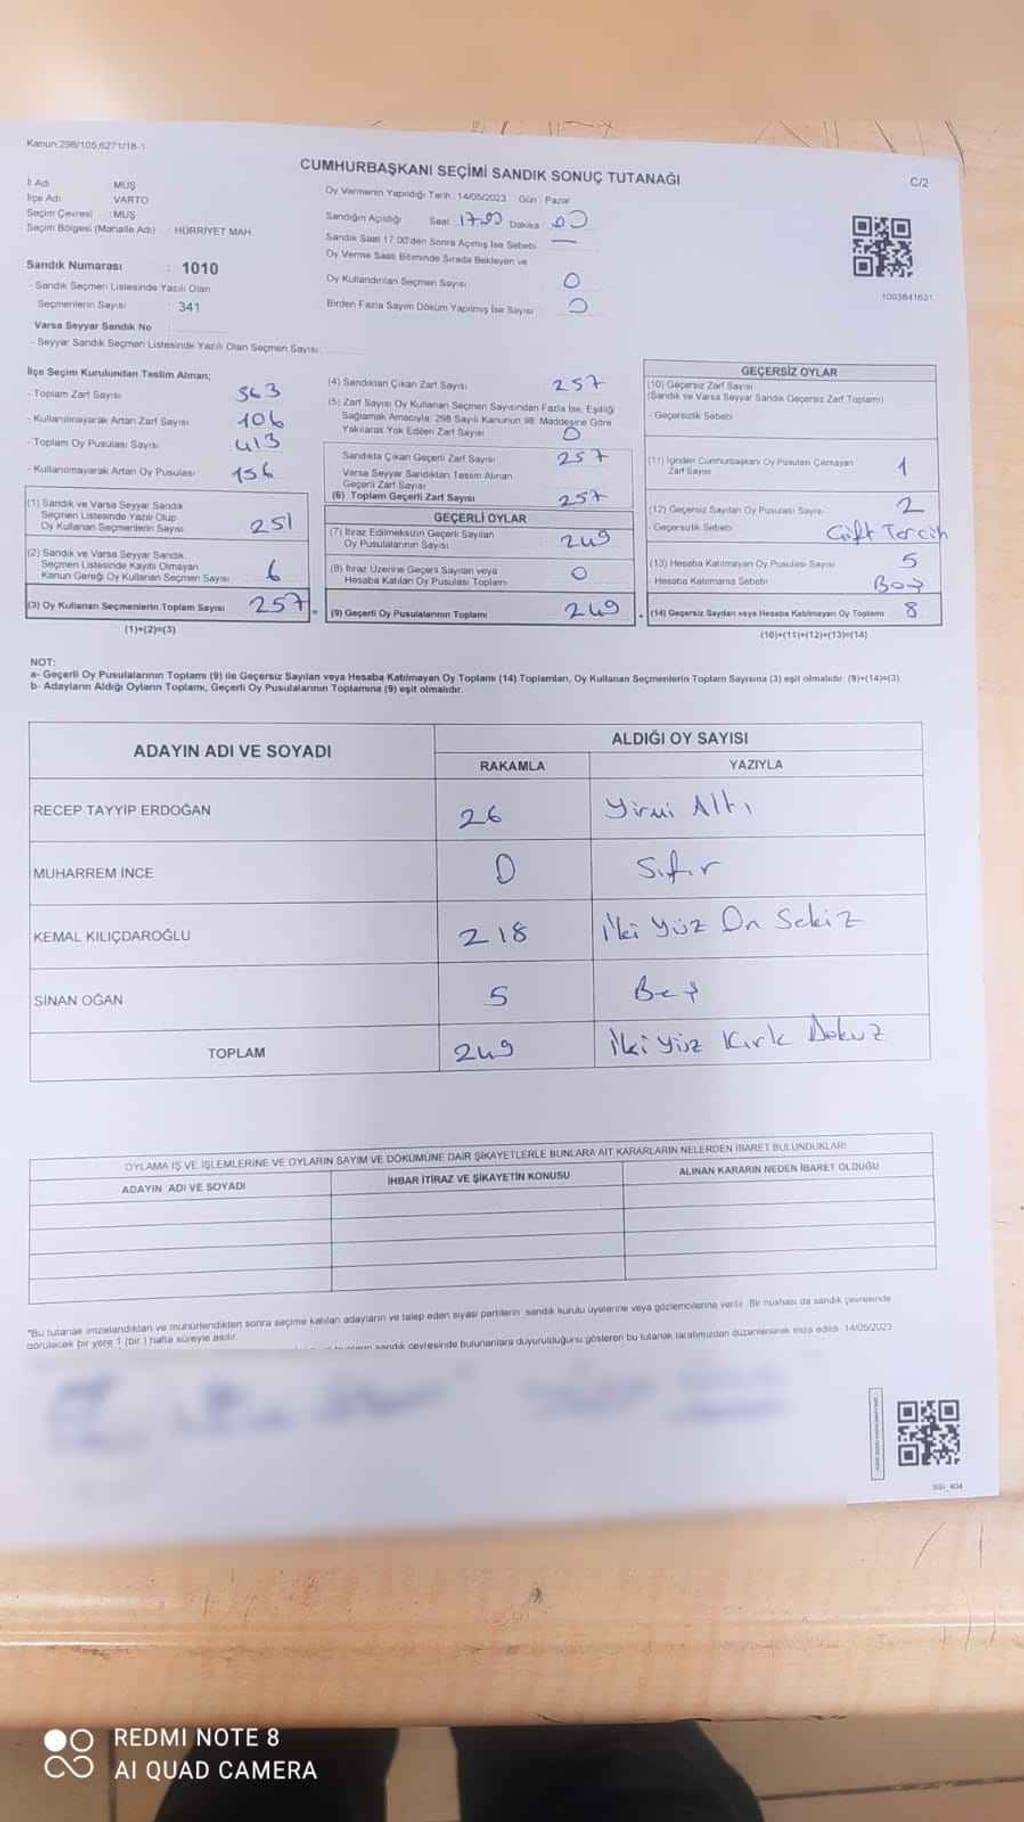 Kanun:298/105,6271/18-1
CUMHURBAŞKANI SEÇİMİ SANDIK SONUÇ TUTANAĞI
C/2
İl Adı MUŞ
İlçe Adı VARTO
Seçim Çevresi : MUŞ
Seçim Bölgesi (Mahalle Adı) : HÜRRİYET MAH.
Sandık Numarası : 1010
- Sandık Seçmen Listesinde Yazılı Olan
Seçmenlerin Sayısı : 341
Varsa Seyyar Sandık No
- Seyyar Sandık Seçmen Listesinde Yazılı Olan Seçmen Sayısı:
Oy Vermenin Yapıldığı Tarih : 14/05/2023 Gün : Pazar
Sandığın Açıldığı Saat : 17:00 Dakika : 00
Sandık Saat 17:00'den Sonra Açılmış İse Sebebi —
Oy Verme Saati Bitiminde Sırada Bekleyen ve
Oy Kullandırılan Seçmen Sayısı 0
Birden Fazla Sayım Döküm Yapılmış İse Sayısı 0
1003841631
İlçe Seçim Kurulundan Teslim Alınan;
- Toplam Zarf Sayısı 363
- Kullanılmayarak Artan Zarf Sayısı 106
- Toplam Oy Pusulası Sayısı 413
- Kullanılmayarak Artan Oy Pusulası 156
(1) Sandık ve Varsa Seyyar Sandık
Seçmen Listesinde Yazılı Olup
Oy Kullanan Seçmenlerin Sayısı 251
(2) Sandık ve Varsa Seyyar Sandık
Seçmen Listesinde Kayıtlı Olmayan
Kanun Gereği Oy Kullanan Seçmen Sayısı 6
(3) Oy Kullanan Seçmenlerin Toplam Sayısı 257
(1)+(2)=(3)
(4) Sandıktan Çıkan Zarf Sayısı 257
(5) Zarf Sayısı Oy Kullanan Seçmen Sayısından Fazla İse, Eşitliği
Sağlamak Amacıyla, 298 Sayılı Kanunun 98. Maddesine Göre
Yakılarak Yok Edilen Zarf Sayısı 0
Sandıkta Çıkan Geçerli Zarf Sayısı 257
Varsa Seyyar Sandıktan Teslim Alınan
Geçerli Zarf Sayısı
(6) Toplam Geçerli Zarf Sayısı 257
GEÇERLİ OYLAR
(7) İtiraz Edilmeksizin Geçerli Sayılan
Oy Pusulalarının Sayısı 249
(8) İtiraz Üzerine Geçerli Sayılan veya
Hesaba Katılan Oy Pusulası Toplamı 0
(9) Geçerli Oy Pusulalarının Toplamı 249
GEÇERSİZ OYLAR
(10) Geçersiz Zarf Sayısı
(Sandık ve Varsa Seyyar Sandık Geçersiz Zarf Toplamı)
- Geçersizlik Sebebi
(11) İçinden Cumhurbaşkanı Oy Pusulası Çıkmayan
Zarf Sayısı 1
(12) Geçersiz Sayılan Oy Pusulası Sayısı 2
- Geçersizlik Sebebi Çift Tercih
(13) Hesaba Katılmayan Oy Pusulası Sayısı 5
- Hesaba Katılmama Sebebi Boş
(14) Geçersiz Sayılan veya Hesaba Katılmayan Oy Toplamı 8
(10)+(11)+(12)+(13)=(14)
NOT:
a- Geçerli Oy Pusulalarının Toplamı (9) ile Geçersiz Sayılan veya Hesaba Katılmayan Oy Toplamı (14) Toplamları, Oy Kullanan Seçmenlerin Toplam Sayısına (3) eşit olmalıdır. (9)+(14)=(3)
b- Adayların Aldığı Oyların Toplamı, Geçerli Oy Pusulalarının Toplamına (9) eşit olmalıdır.
ADAYIN ADI VE SOYADI ALDIĞI OY SAYISI
RAKAMLA YAZIYLA
RECEP TAYYİP ERDOĞAN 26 Yirmi Altı
MUHARREM İNCE 0 Sıfır
KEMAL KILIÇDAROĞLU 218 İki Yüz On Sekiz
SİNAN OĞAN 5 Beş
TOPLAM 249 İki Yüz Kırk Dokuz
OYLAMA İŞ VE İŞLEMLERİNE VE OYLARIN SAYIM VE DÖKÜMÜNE DAİR ŞİKAYETLERLE BUNLARA AİT KARARLARIN NELERDEN İBARET BULUNDUKLARI
ADAYIN ADI VE SOYADI İHBAR İTİRAZ VE ŞİKAYETİN KONUSU ALINAN KARARIN NEDEN İBARET OLDUĞU
"Bu tutanak imzalandıktan ve mühürlendikten sonra seçime katılan adayların ve talep eden siyasi partilerin sandık kurulu üyelerine veya gözlemcilerine verilir. Bir nüshası da sandık çevresinde
görülecek bir yere 1 (bir) hafta süreyle asılır.
sandık çevresinde bulunanlara duyurulduğunu gösteren bu tutanak tarafımızdan düzenlenerek imza edildi. 14/05/2023
REDMI NOTE 8
AI QUAD CAMERA